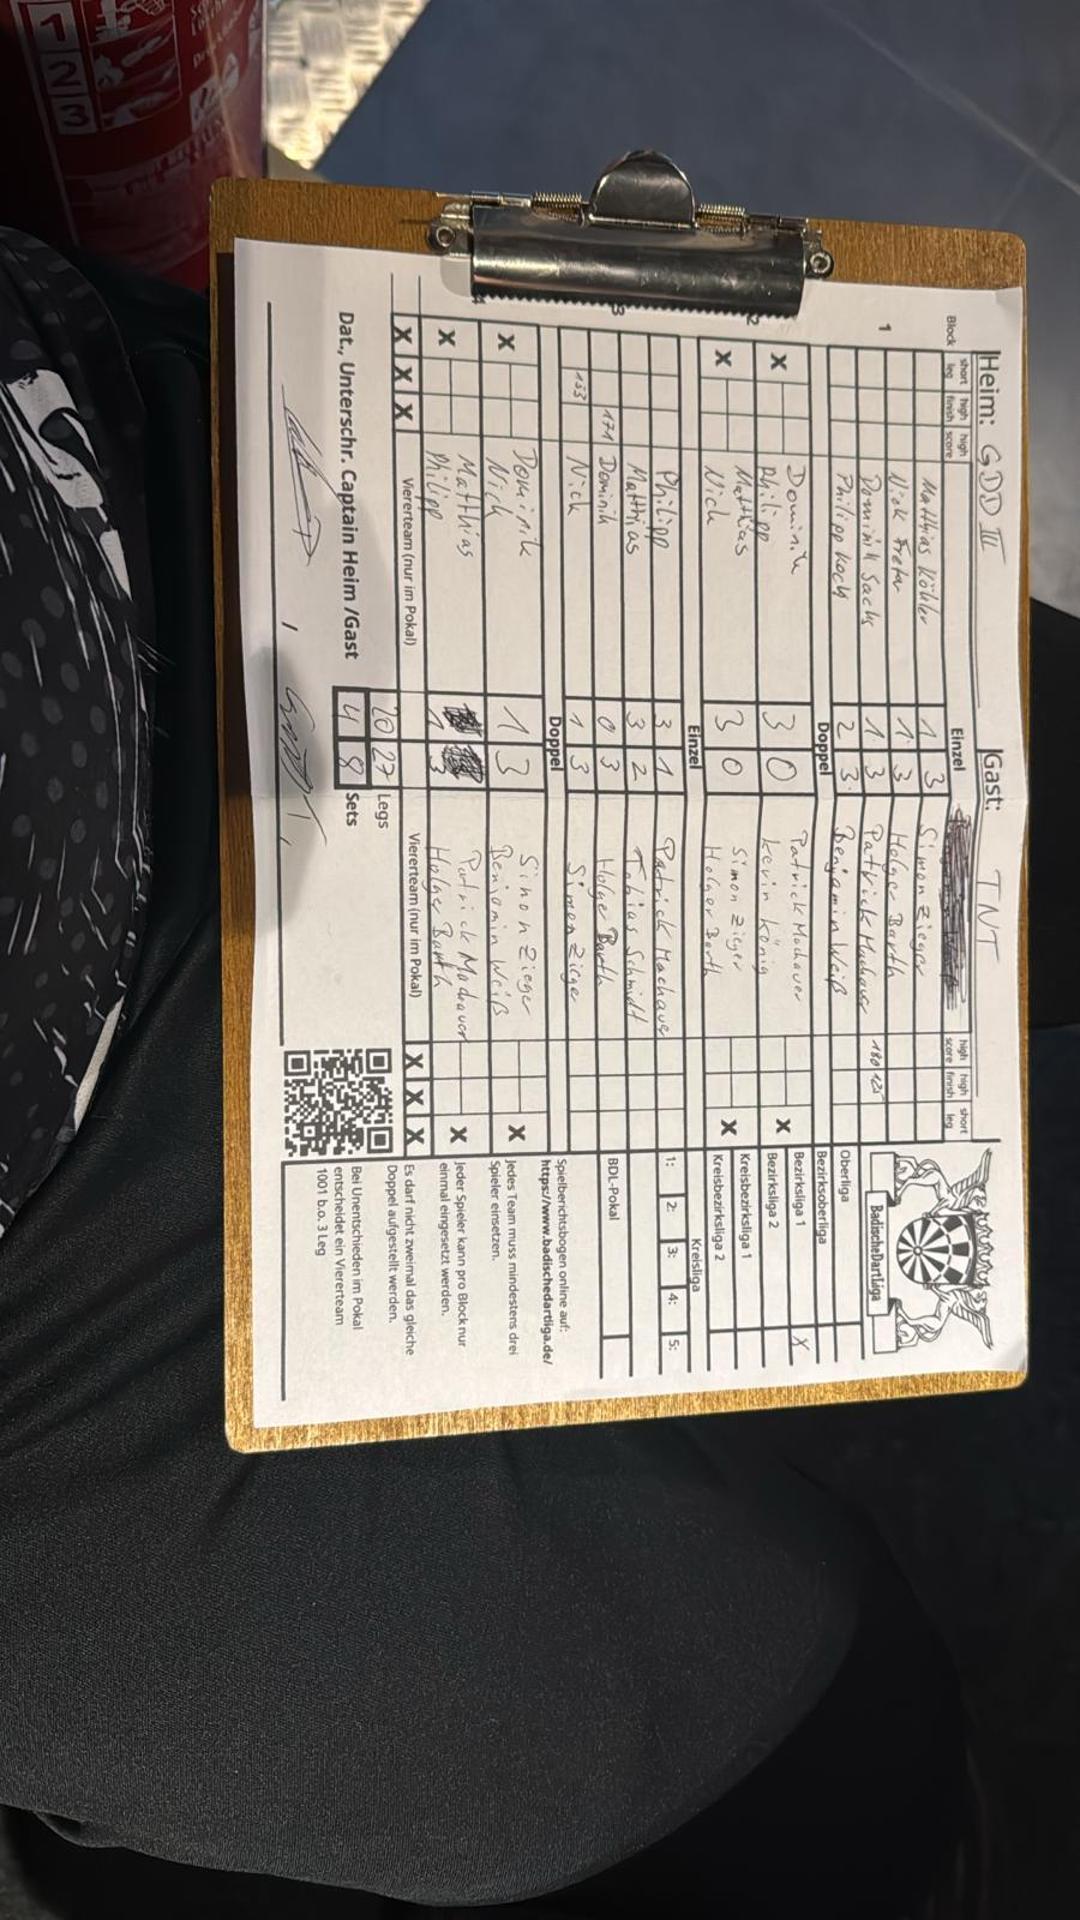 Heim: GDD III Gast: TNT
Block short leg high finish high score Einzel high score high finish short leg
1
Matthias Köhler 1 3 Simon Zieger
Nick 1 3 Holger Barth
Dominik Sachs 1 3 Patrick Machauer 180 125
Philipp Koch 2 3 Benjamin Weiß
Doppel
2
Dominik Patrick Machauer
X Philipp 3 0 Kevin König X
Matthias Simon Zieger
X Nick 3 0 Holger Barth X
Einzel
3
Philipp 3 1 Patrick Machauer
Matthias 3 2 Tobias Schmidt
171 Dominik 0 3 Holger Barth
133 Nick 1 3 Simon Zieger
Doppel
4
Dominik Simon Zieger
X Nick 1 3 Benjamin Weiß X
Matthias Patrick Machauer
X Philipp 1 3 Holger Barth X
X X X Viererteam (nur im Pokal) Viererteam (nur im Pokal) X X X
20 27 Legs
Dat., Unterschr. Captain Heim /Gast 4 8 Sets
BadischeDartLiga
Oberliga
Bezirksoberliga
Bezirksliga 1 X
Bezirksliga 2
Kreisbezirksliga 1
Kreisbezirksliga 2
Kreisliga
1: 2: 3: 4: 5:
BDL-Pokal
Spielberichtsbogen online auf:
https://www.badischedartliga.de/
Jedes Team muss mindestens drei
Spieler einsetzen.
Jeder Spieler kann pro Block nur
einmal eingesetzt werden.
Es darf nicht zweimal das gleiche
Doppel aufgestellt werden.
Bei Unentschieden im Pokal
entscheidet ein Viererteam
1001 b.o. 3 Leg
1
2
3